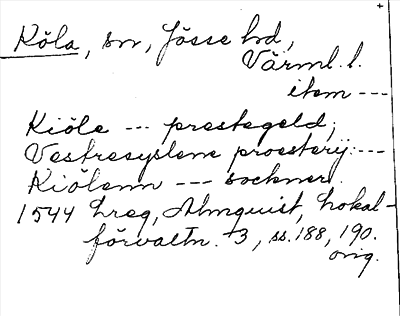 +
Köla, sn, Jösse hd,
Värml. l.
item ---
Kiöle --- prestegeld;
Vestresyslene proesterij: ---
Kiölenn --- sockner.
1544 hreg, Almquist, Lokal-
förvaltn. 3, ss. 188, 190.
orig.